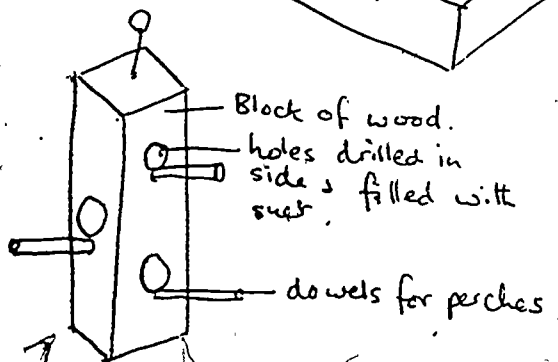 Block of wood.
holes drilled in
side & filled with
suet.
dowels for perches